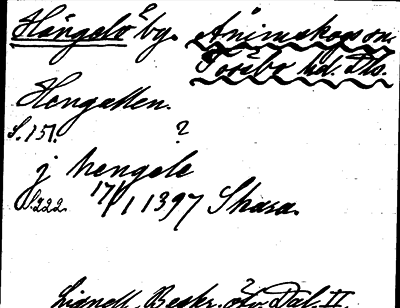 Hängelö by. Ånimskogs sn.
Tössbo hd. Dls.
Hengellen.
S. 151. ?
j hengele
S. 222. 17/1 1397 Skara.
Lignell, Beskr. öv. Dal. II.